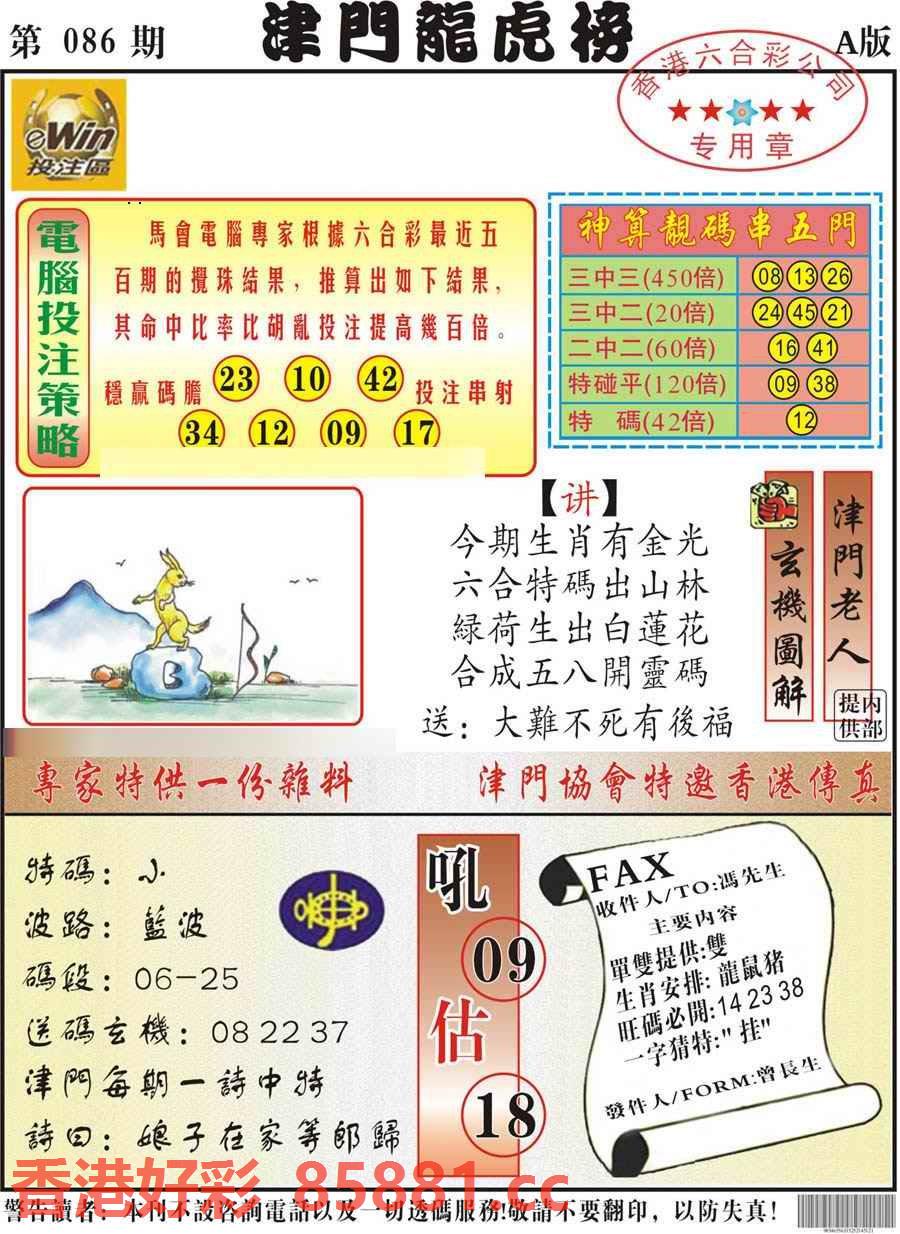 第 086 期
津門龍虎榜
A版
香港六合彩公司
专用章
eWin
投注區
電腦投注策略
馬會電腦專家根據六合彩最近五
百期的攪珠結果，推算出如下結果，
其命中比率比胡亂投注提高幾百倍。
穩贏碼膽 23 10 42 投注串射
34 12 09 17
神算靚碼串五門
三中三(450倍) 08 13 26
三中二(20倍) 24 45 21
二中二(60倍) 16 41
特碰平(120倍) 09 38
特 碼(42倍) 12
【讲】
今期生肖有金光
六合特碼出山林
緑荷生出白蓮花
合成五八開靈碼
送：大難不死有後福
玄機圖解
津門老人
内部提供
專家特供一份雜料
津門協會特邀香港傳真
特碼：小
波路：藍波
碼段：06-25
送碼玄機：08 22 37
津門每期一詩中特
詩曰：娘子在家等郎歸
吼
09
估
18
FAX
收件人/TO:馮先生
主要内容
單雙提供:雙
生肖安排:龍鼠猪
旺碼必開:14 23 38
一字猜特:"挂"
發件人/FORM:曾長生
香港好彩 85881.cc
警告讀者：本刊不設咨詢電話以及一切透碼服務!敬請不要翻印，以防失真！